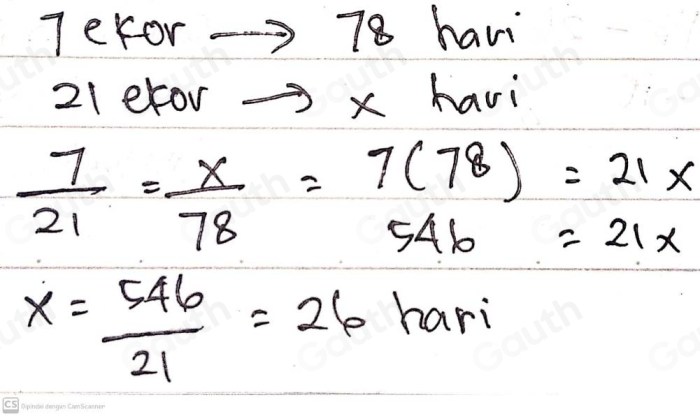 7 ekor → 78 hari
21 ekor → x hari
7/21 = x/78 = 7(78) = 21x
546 = 21x
x = 546/21 = 26 hari
CS Dipindai dengan CamScanner
Gauth